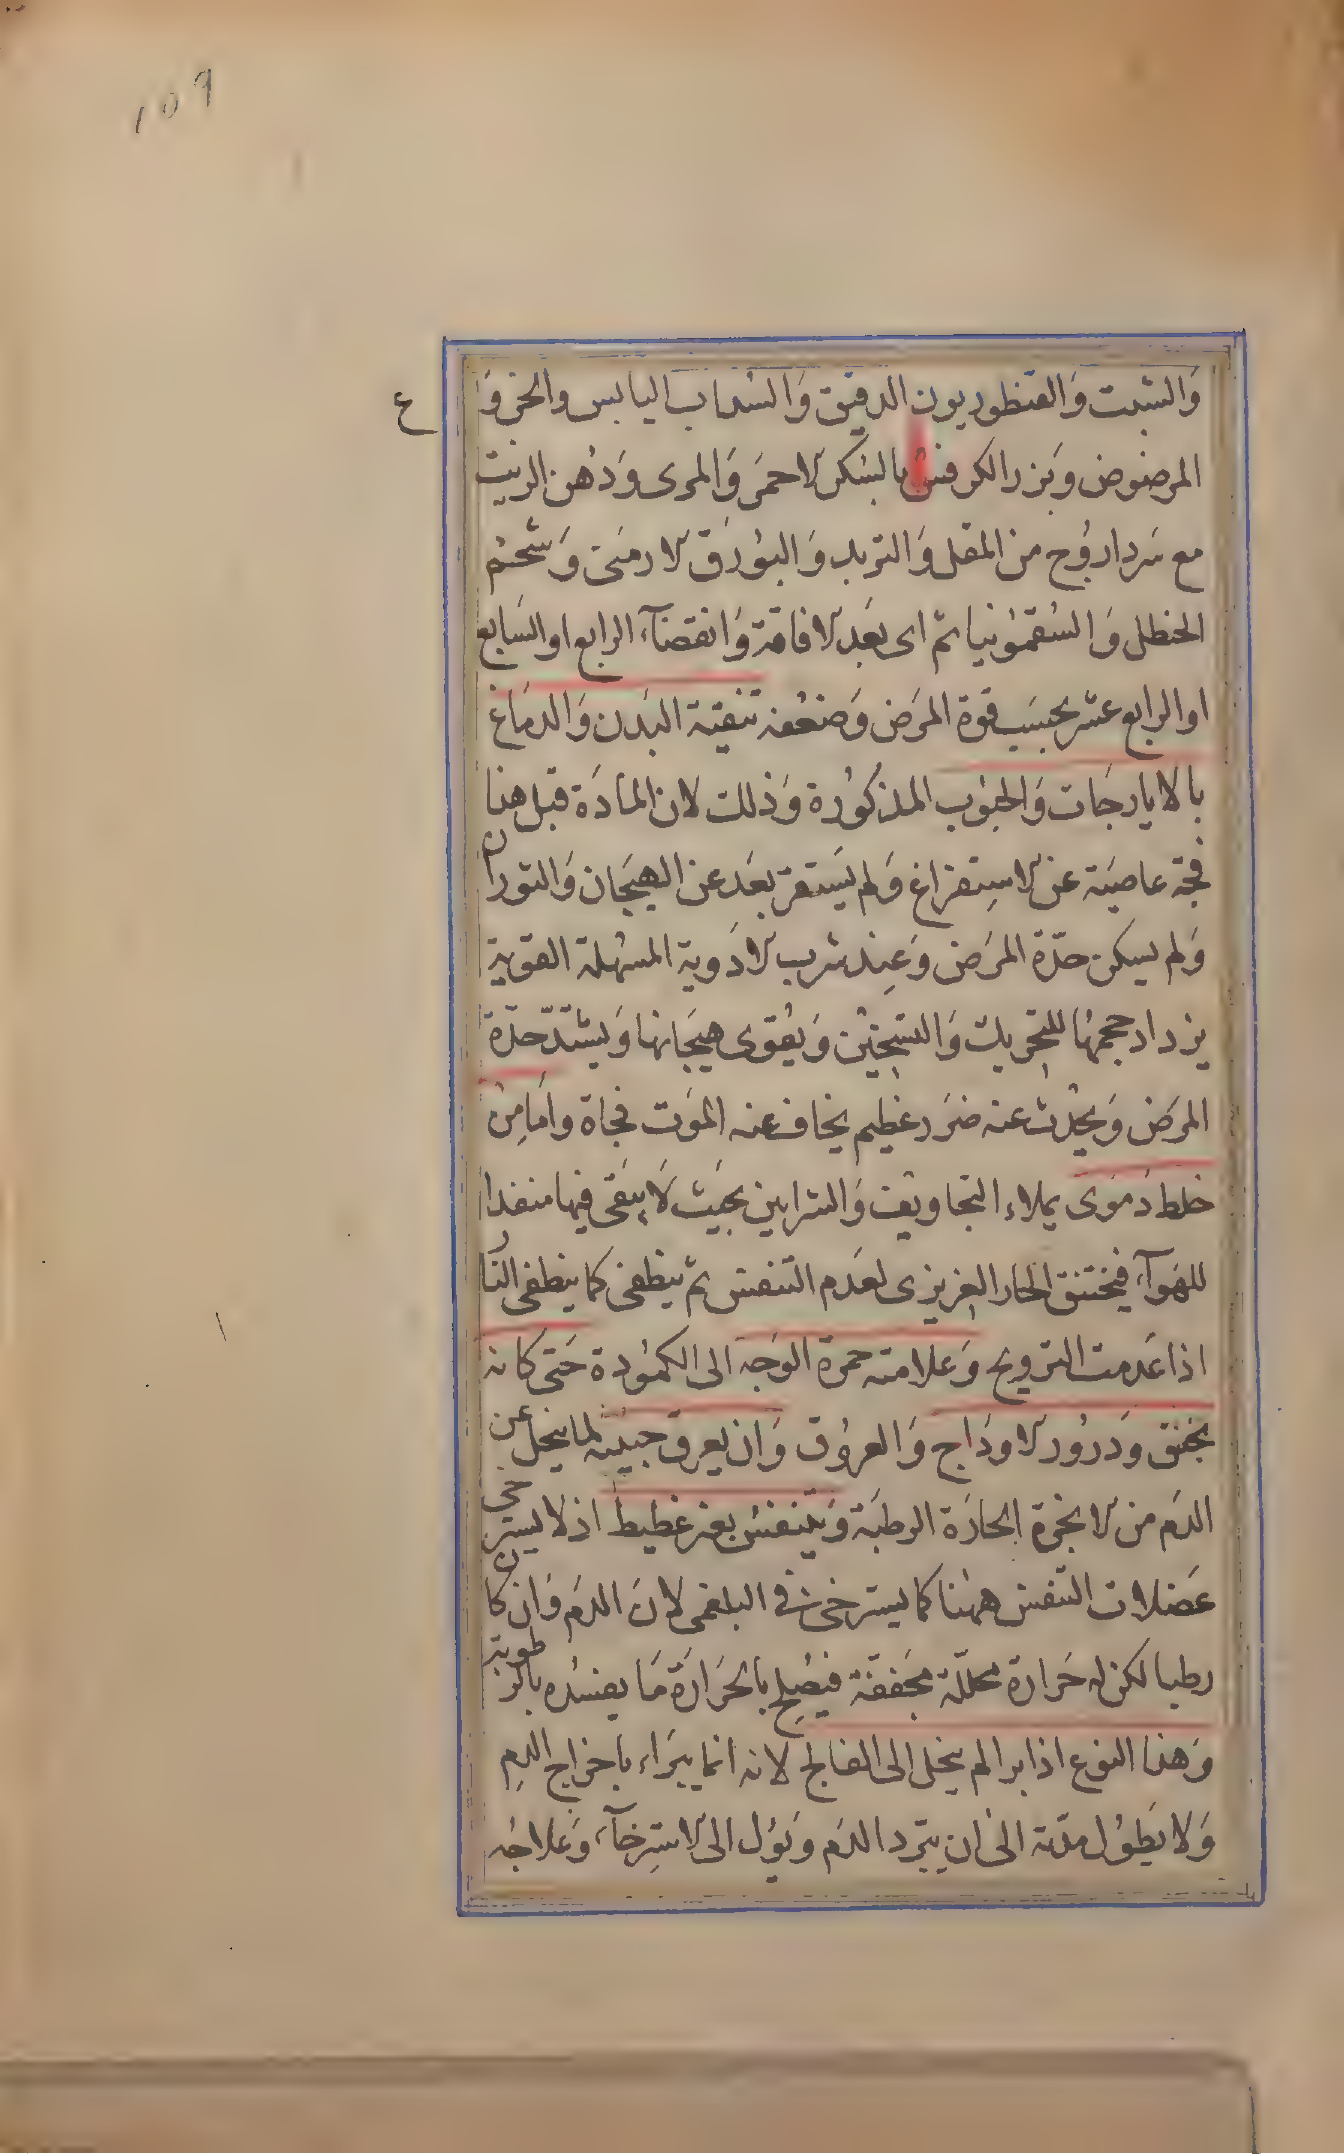 ١٥٩
ع
وَالشبت وَالقنطوريون الدقيق وَالسُداب اليابس والخروَع
المرضوض وَبزر الكرفس بالسُكر الاحمَر وَالمرى وَدُهن الزيت
مع سَرداروُج من المقل وَالتربد وَالبُورَق الارمَنى وَشحم
الحنظل وَالسُقمونيا ثم اى بعَد الافاقة وَانقضآء الرابع او السَابع
او الرابع عشر بحسَب قوة المرَض وَضعُفه تنقية البَدن وَالدماغ
بالايارجَات وَالحبُوب المذكوُرة وَذلك لان المادَة قبل هذا
فجة عاصيَة عن الاستِفراغ وَلم يَستقر بعَد عن الهيجَان وَالثوران
وَلم يسكن حدّة المرَض وَعِند شرب الادَوية المسُهلة القوية
يزداد حجمهُا للتحريك وَالتسَخيُن وَيقُوى هيجَانها وَيشتدّ حدّة
المرَض وَيحدُث عنه ضرَر عظيم يخاف عنه الموَت فجاة وامَا مِن
خلط دَموَى يملاء التجاويف وَالشرايين بحيَث لا يبَقى فيها منفذا
للهَوآء فيختنق الحار الغريزى لعَدم التنفس ثم ينطفى كما ينطفى النَار
اذا عَدمت الترويح وَعلامته حمرة الوَجه الى الكمُودة حَتى كانه
يخنق وَدرُور الاودَاج وَالعروُق وَان يعرق جبينُه لما يتحلل عن
الدَم من الابخرة الحارَة الرطبَة وَيتنفسُ بغير غطيط اذ لا يسترخى
عَضلات التنفس ههنا كما يسترخى فى البلغمى لان الدَم وَان كان
رطبا لكن له حَرارة محللّة مجَففّة فيصُلِح بالحرَارَة مَا يفسُده بالرطوبة
وَهذا النوع اذا برا لم ينحل الى الفالج لانه انما يبرَاء باخراج الدم
وَلا يَطوُل مدّته الى ان يبَرد الدَم وَيوُل الى الاستِرخآء وَعلاجُه